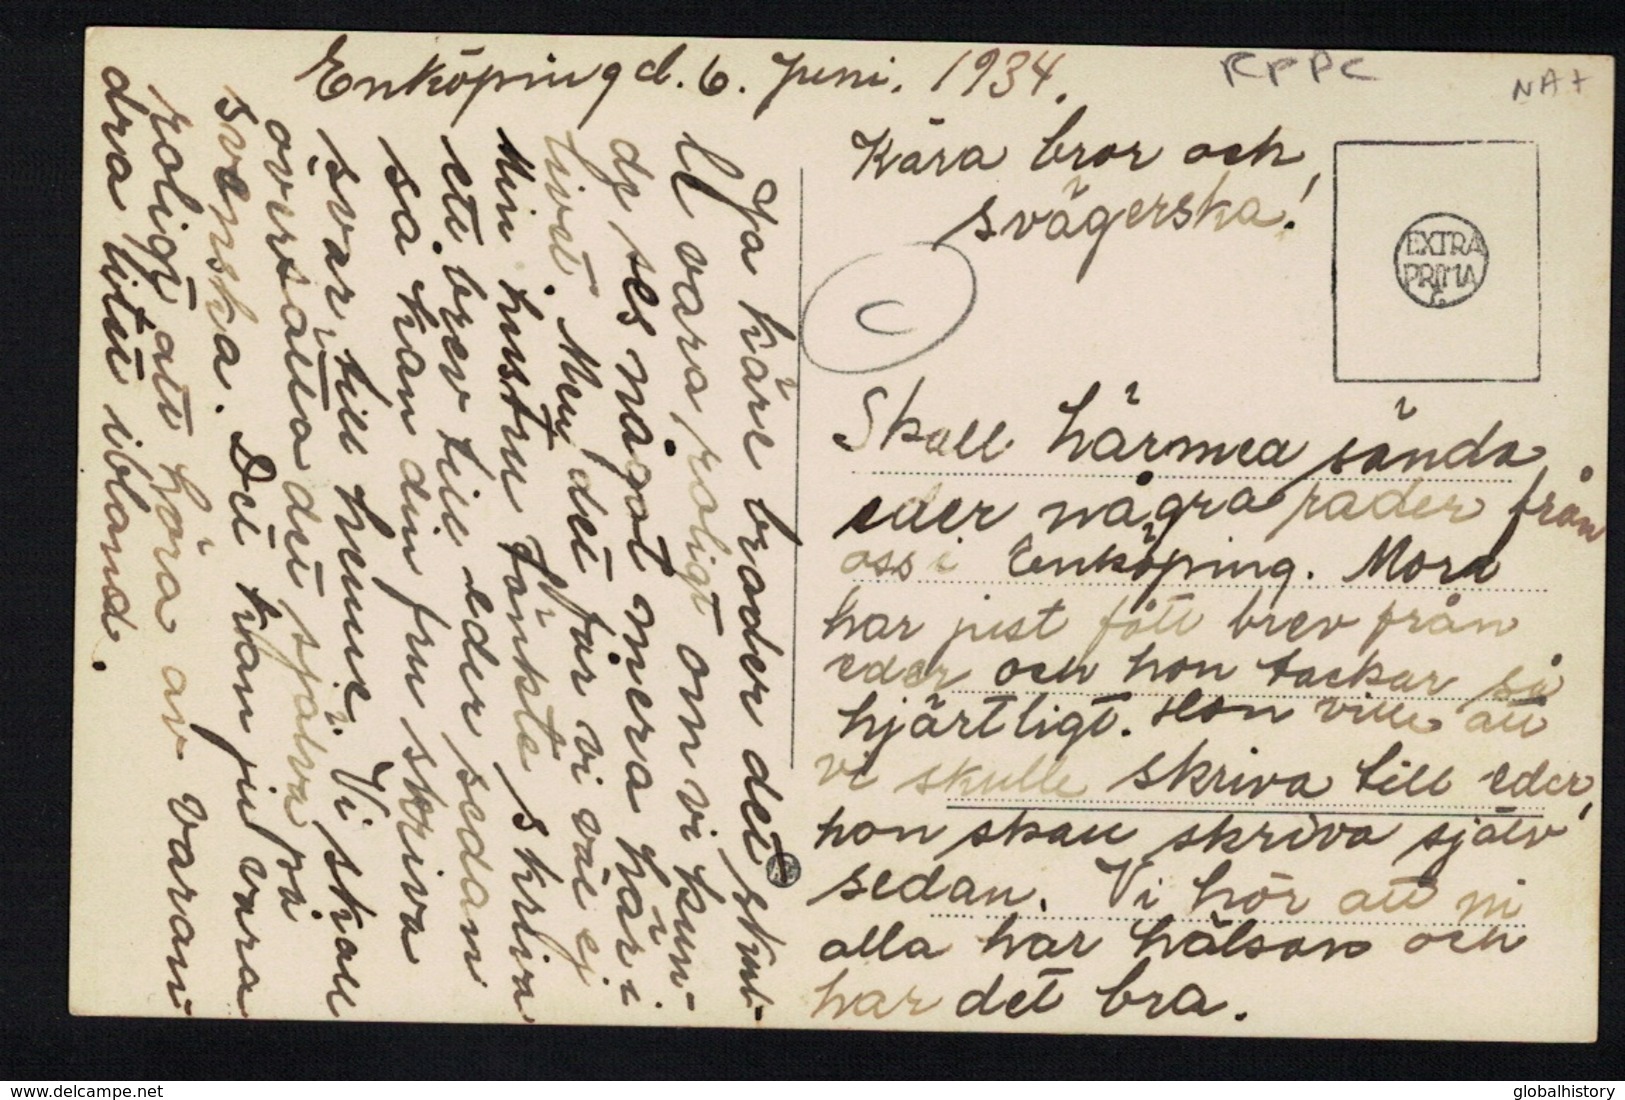 Enköping d. 6. Juni. 1934.
RPPC
NA+
Kära bror och
svägerska!
EXTRA
PRIMA
C
Skall härmed sända
eder några rader från
oss i Enköping. Mora
har just fått brev från
eder och hon tackar så
hjärtligt. Hon ville att
vi skulle skriva till eder,
hon skall skriva själv
sedan. Vi hör att ni
alla har hälsan och
har det bra.
Ja käre broder det skul-
le vara roligt om vi kun-
de ses något mera här i
livet. Men det får vi väl ej
Min hustru tänkte skriva
ett brev till eder sedan
så kan din fru skriva
svar till henne. Vi skall
översätta det själva på
svenska. Det kan ju vara
roligt att höra av varan-
dra litet ibland.
www.delcampe.net
globalhistory